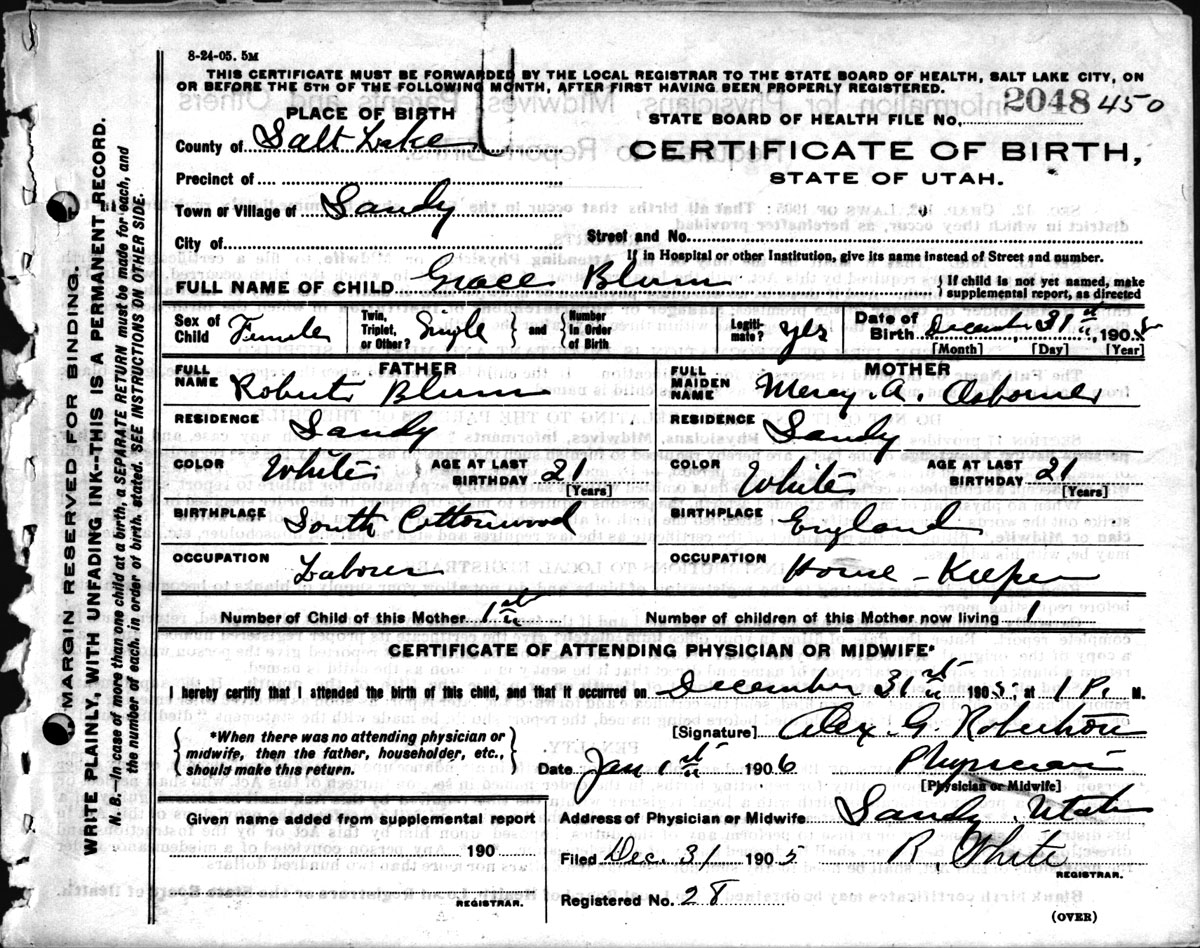 8-24-05. 5M
THIS CERTIFICATE MUST BE FORWARDED BY THE LOCAL REGISTRAR TO THE STATE BOARD OF HEALTH, SALT LAKE CITY, ON
OR BEFORE THE 5TH OF THE FOLLOWING MONTH, AFTER FIRST HAVING BEEN PROPERLY REGISTERED.
PLACE OF BIRTH
STATE BOARD OF HEALTH FILE No. 2048 450
County of Salt Lake
CERTIFICATE OF BIRTH,
STATE OF UTAH.
Precinct of
Town or Village of Sandy
City of
Street and No.
If in Hospital or other Institution, give its name instead of Street and number.
FULL NAME OF CHILD Grace Blum
If child is not yet named, make
supplemental report, as directed
Sex of Child Female
Twin, Triplet, or Other? Single
and
Number in Order of Birth
Legitimate? yes
Date of Birth December 31st, 1905
[Month] [Day] [Year]
FATHER
FULL NAME Robert Blum
RESIDENCE Sandy
COLOR White AGE AT LAST BIRTHDAY 21
[Years]
BIRTHPLACE South Cottonwood
OCCUPATION Laborer
MOTHER
FULL MAIDEN NAME Mercy. A. Osborne
RESIDENCE Sandy
COLOR White AGE AT LAST BIRTHDAY 21
[Years]
BIRTHPLACE England
OCCUPATION House-Keeper
Number of Child of this Mother 1st
Number of children of this Mother now living 1
CERTIFICATE OF ATTENDING PHYSICIAN OR MIDWIFE*
I hereby certify that I attended the birth of this child, and that it occurred on December 31st 1905, at 1 P. M.
*When there was no attending physician or
midwife, then the father, householder, etc.,
should make this return.
[Signature] Alex. G. Robertson
Date Jan 1st 1906 Physician
[Physician or Midwife]
Given name added from supplemental report
190
REGISTRAR.
Address of Physician or Midwife. Sandy Utah
Filed Dec. 31 1905 R White
REGISTRAR.
Registered No. 28
(OVER)
MARGIN RESERVED FOR BINDING.
WRITE PLAINLY, WITH UNFADING INK--THIS IS A PERMANENT RECORD.
N. B.--In case of more than one child at a birth, a SEPARATE RETURN must be made for each, and
the number of each, in order of birth, stated. SEE INSTRUCTIONS ON OTHER SIDE.